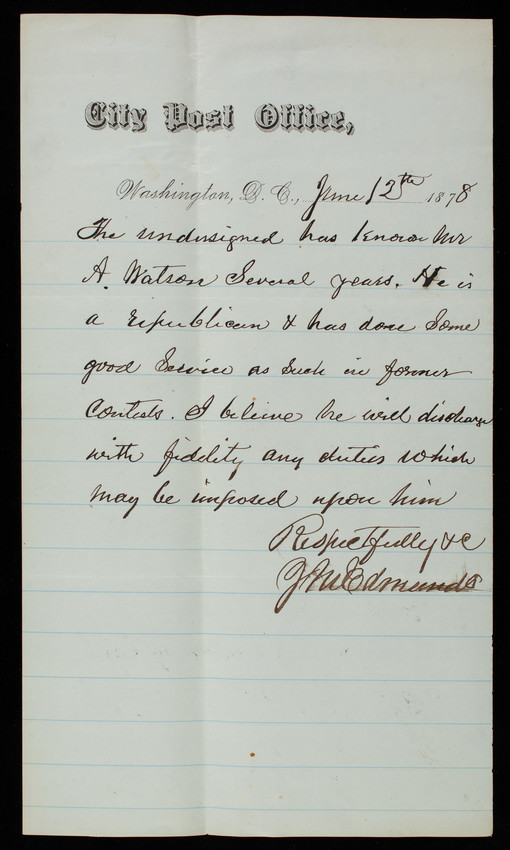 City Post Office,
Washington, D. C., June 12th 1878
The undersigned has known Mr
A. Watson Several years. He is
a republican & has done Some
good Service as Such in former
Contests. I believe he will discharge
with fidelity any duties which
may be imposed upon him
Respectfully &c
J M Edmunds